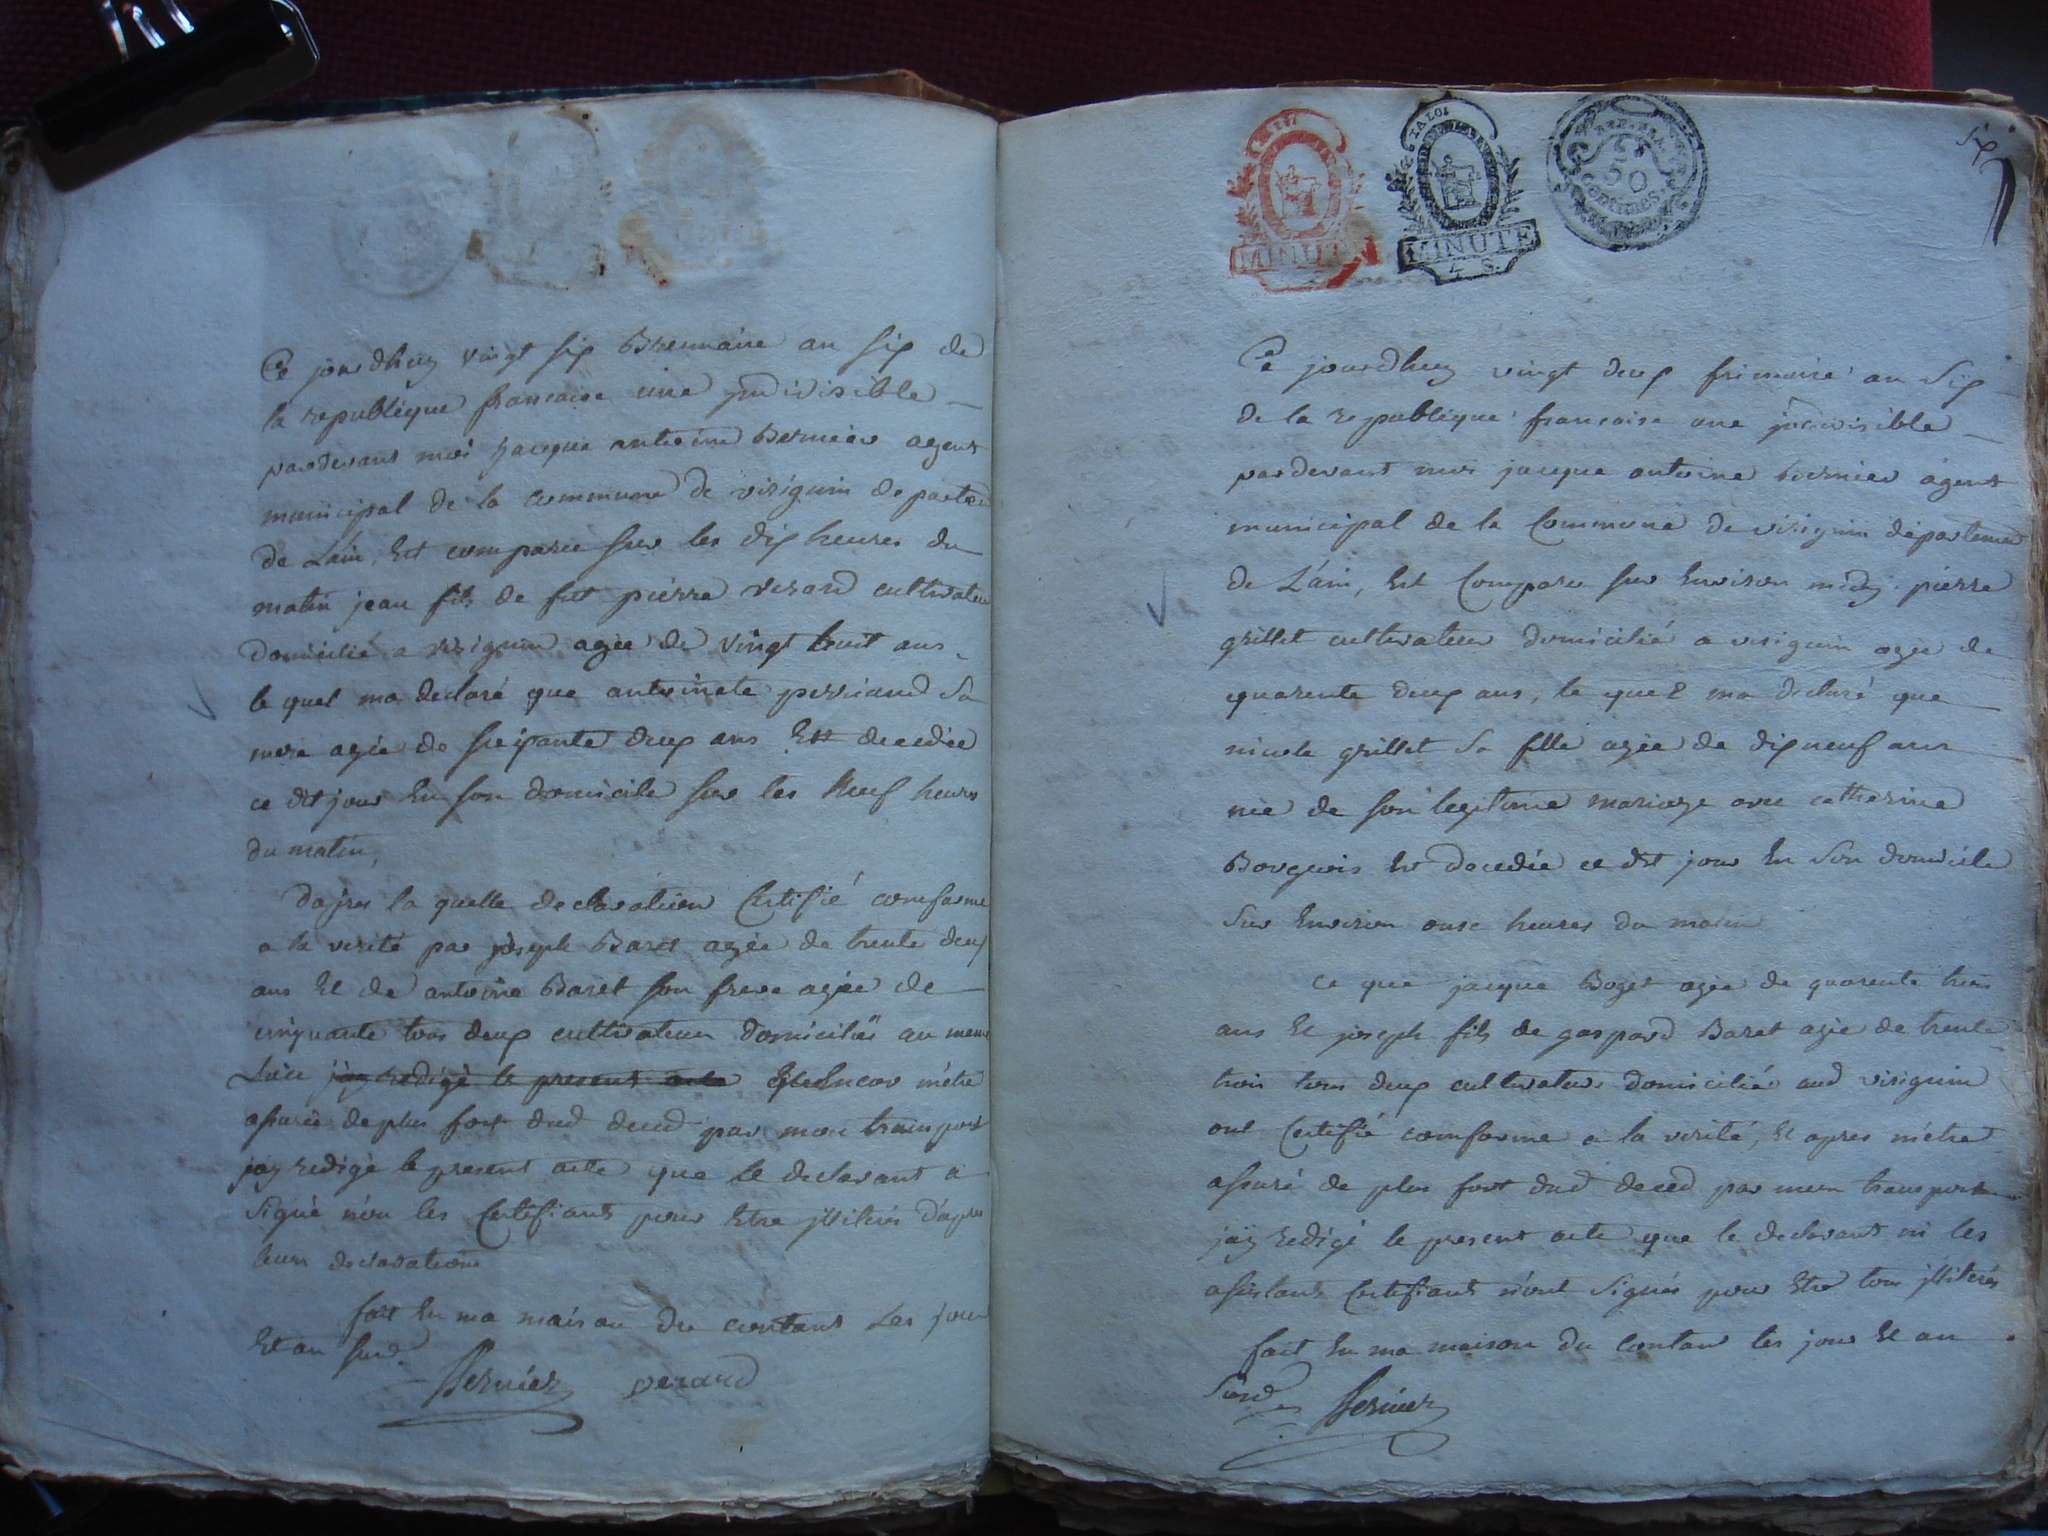 Ce jourdhuy vingt six Breumaire an six de
la republique francaise une indivisible
pardevant moi jacque antoine Bernier agent
municipal de la commune de virignin departem
de Lain, Est comparu sur les dix heures du
matin jean fils de fut pierre verard cultivateur
domicilié a virignin agée de vingt huit ans
le quel ma declaré que antoinete perriand sa
mere agée de soixante deux ans Est decedée
ce dit jour En son domicile sur les Neuf heures
du matin,
Dapres la quelle declaration Certifié comforme
a la verité par joseph Baret agée de trente deux
ans Et de antoine Baret son frere agée de
cinquante tous deux cultivateur domiciliés au meme
Lieu jay redigé le present acte m'étre
assurée de plus fort dud deced par mon transport
jay redigé le present acte que le declarant a
signé n'on les Certifiants pour Etre illiterés d'apres
leurs declarations
fait En ma maison du contant Les jour
Et an susd.
Bernier verard
TALOI
MINUTE
TALOI
MINUTE
4 S.
REP. FRA.
50
Centimes
six
Ce jourdhuy vingt deux frimaire an Six
de la republique francaise une indivisible
pardevant moi jacque antoine bernier agent
municipal de la Commune de virignin departement
de L'ain, Est Comparu sur Environ midy pierre
grillet cultivateur domicilié a virignin agée de
quarente deux ans, le quel ma declaré que
nicole grillet sa fille agée de dix neuf ans
née de son legitime mariage avec catherine
Bourgeois Est decedée ce dit jour En son domicile
sur Environ onze heures du matin
Ce que jacque Boget agée de quarente trois
ans Et joseph fils de gaspard Baret agée de trente
trois tous deux cultivateurs domicilié aud virignin
ont Certifié comforme a la verité, Et apres m'étre
assuré de plus fort dud deced par mon transport
jay redigé le present acte que le declarant ni les
assistants Certifiants n'ont signés pour Etre tous illiterés
fait En ma maison du contant les jour Et an
susd
Bernier